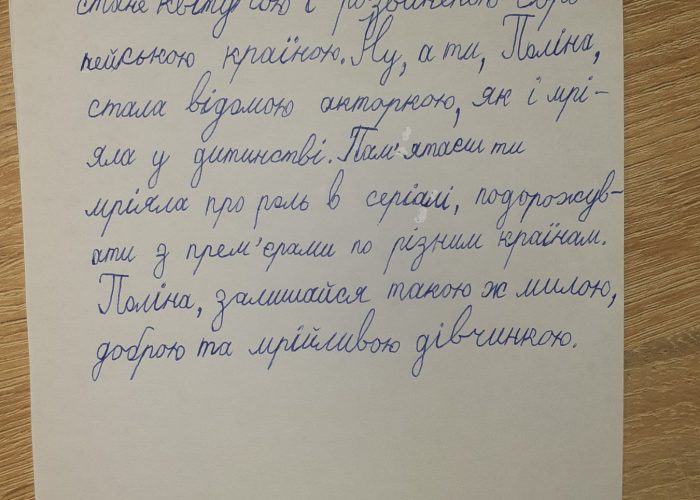 стане квітучою і розвиненою євро
пейською країною. Ну, а ти, Поліна,
стала відомою акторкою, як і мрі-
яла у дитинстві. Пам'ятаєш ти
мріяла про роль в серіалі, подорожув-
ати з прем'єрами по різним країнам.
Поліна, залишайся такою ж милою,
доброю та мрійливою дівчинкою.